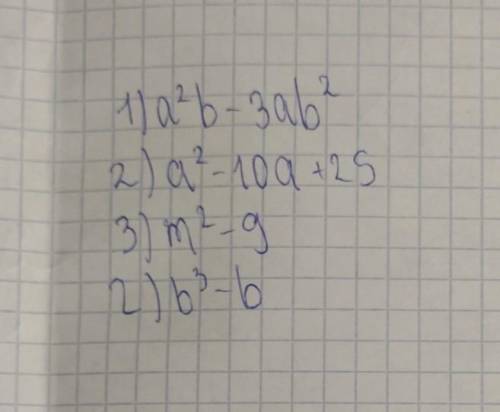 1) a²b - 3ab²
2) a² - 10a + 25
3) m² - 9
2) b³ - b